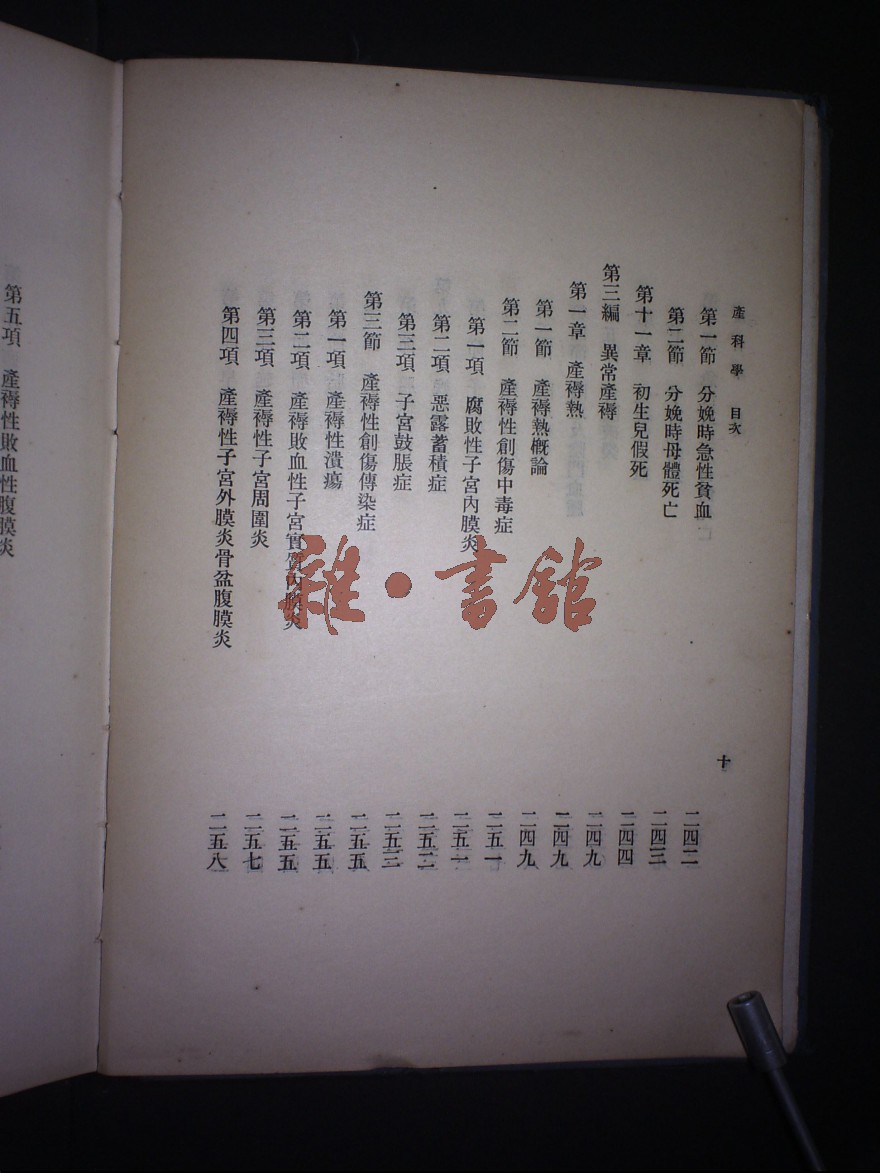 產科學 目次
十
第一節 分娩時急性貧血 二四二
第二節 分娩時母體死亡 二四三
第十一章 初生兒假死 二四四
第三編 異常產褥 二四九
第一章 產褥熱 二四九
第一節 產褥熱概論 二四九
第二節 產褥性創傷中毒症 二五一
第一項 腐敗性子宮內膜炎 二五一
第二項 惡露蓄積症 二五二
第三項 子宮鼓脹症 二五三
第三節 產褥性創傷傳染症 二五五
第一項 產褥性潰瘍 二五五
第二項 產褥敗血性子宮實質內膜炎 二五五
第三項 產褥性子宮周圍炎 二五七
第四項 產褥性子宮外膜炎骨盆腹膜炎 二五八
第五項 產褥性敗血性腹膜炎
雜·書館